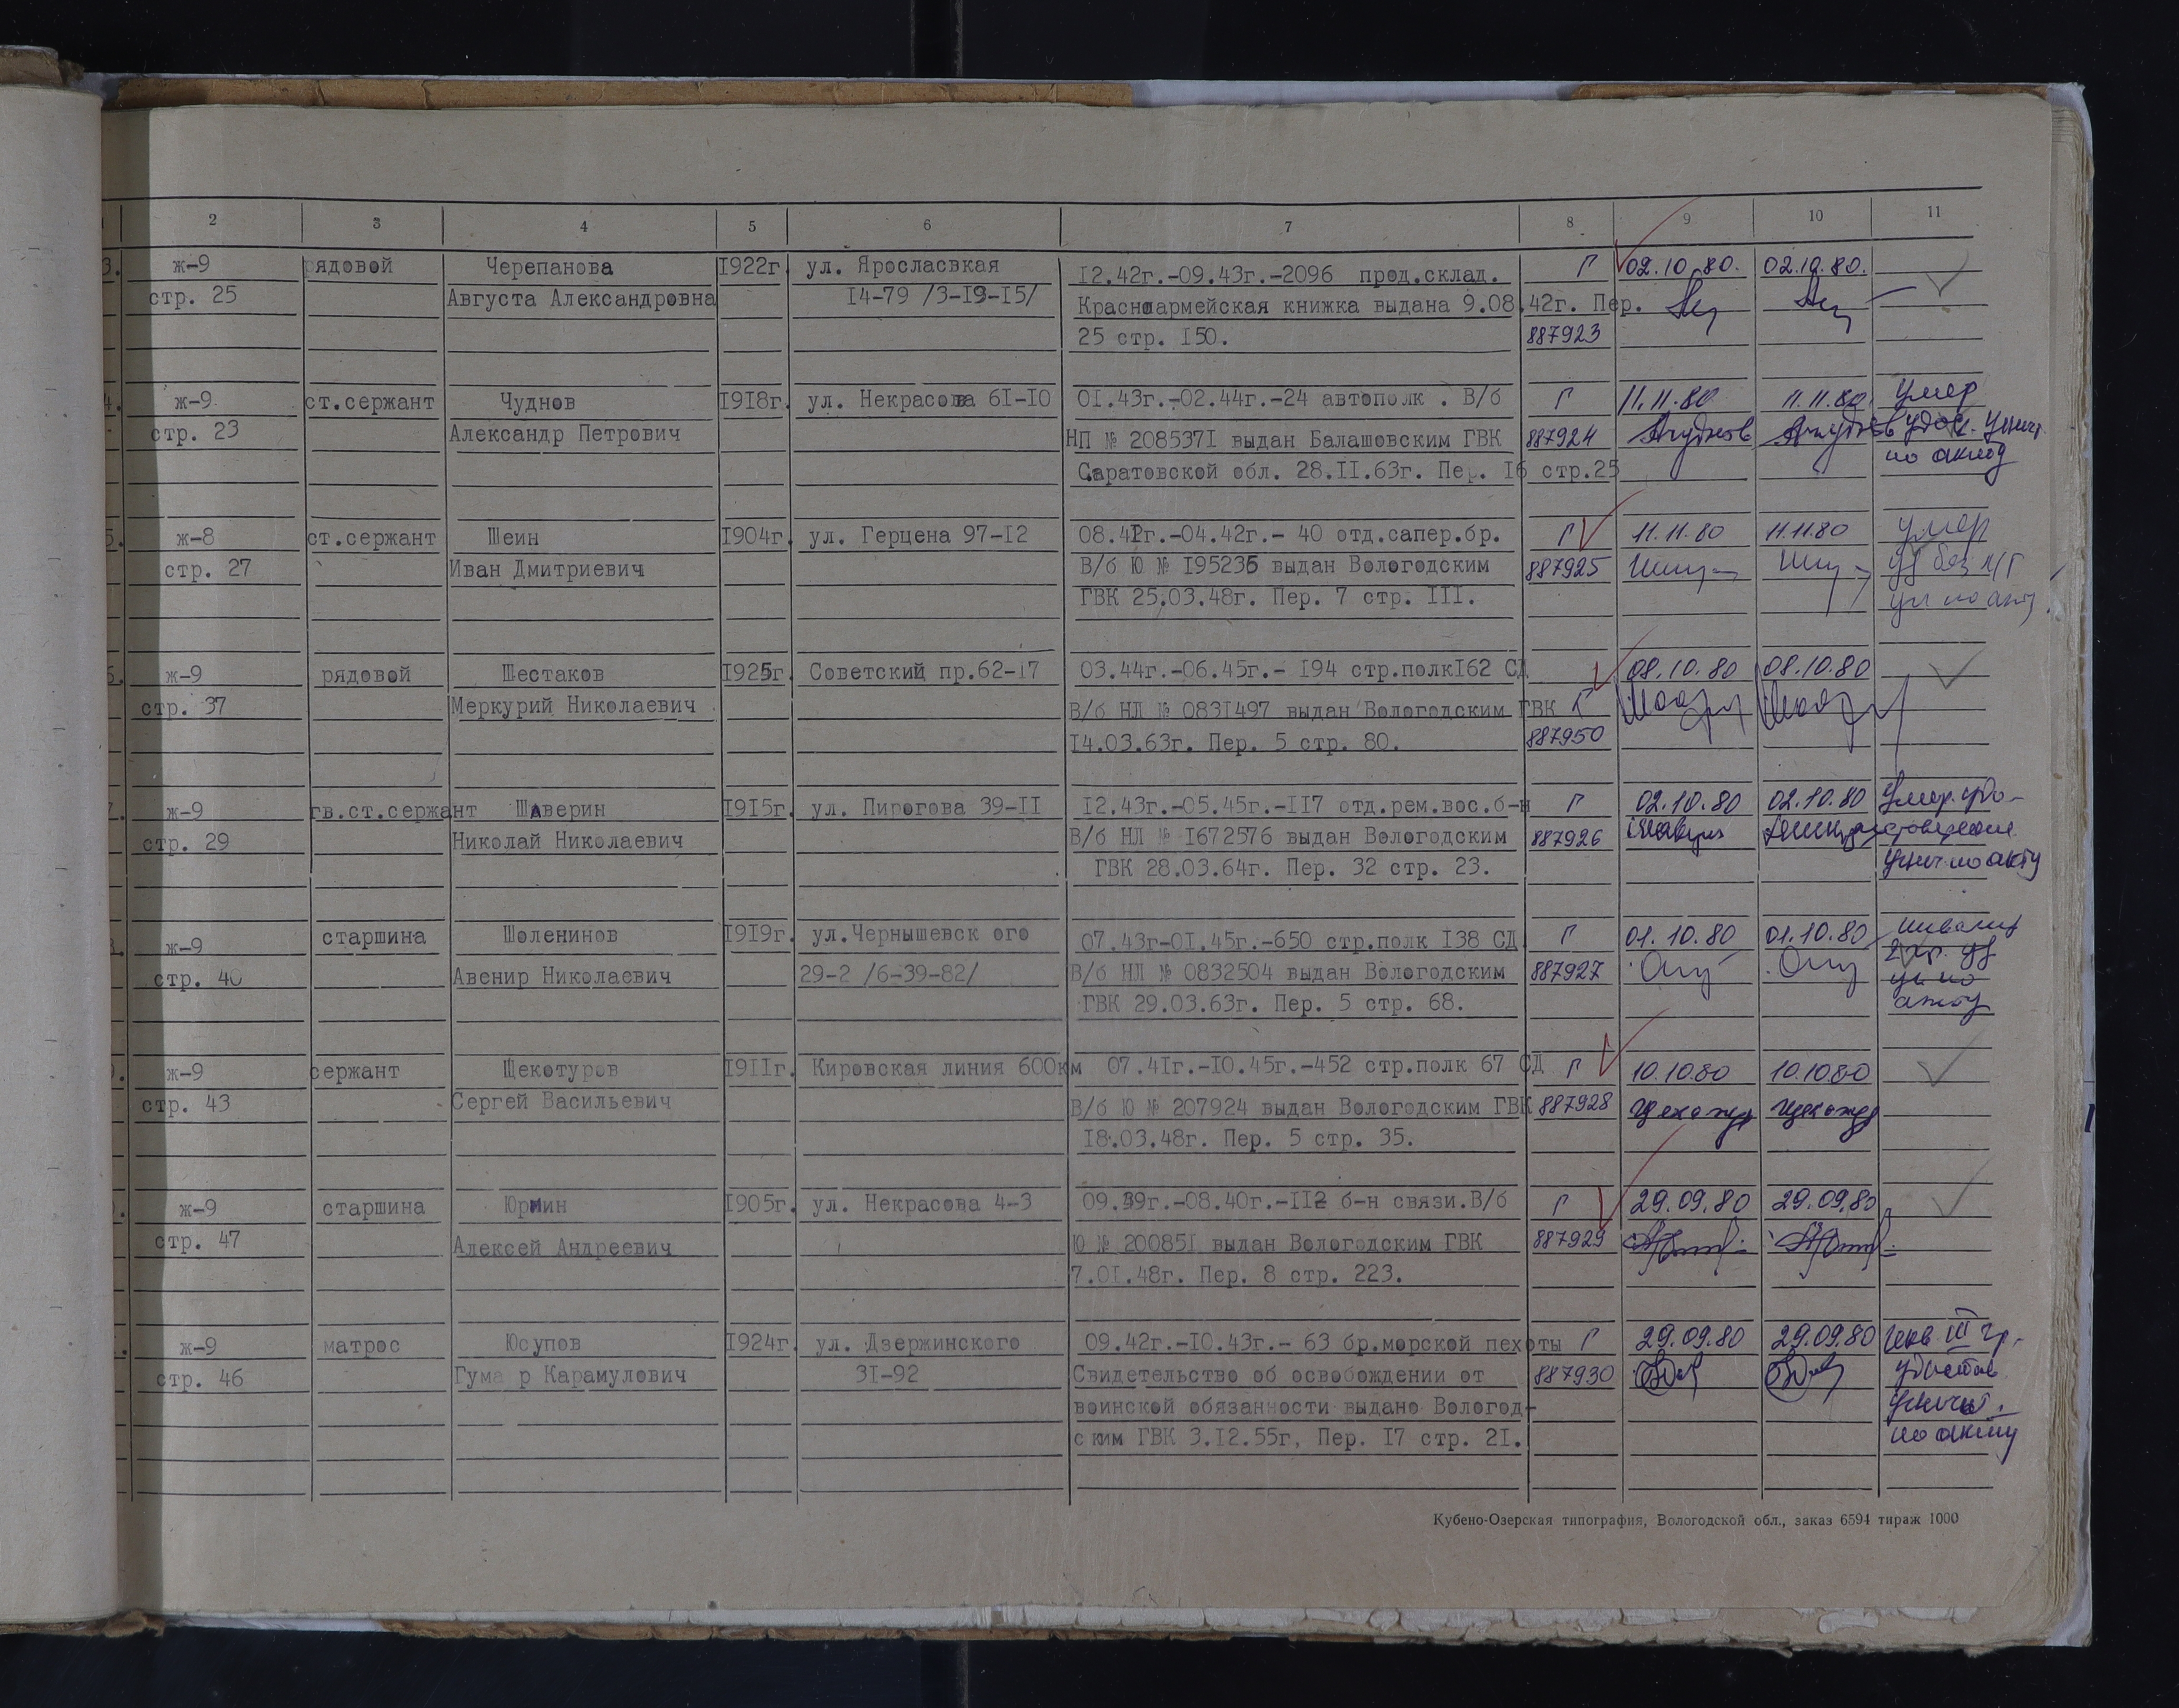 2 3 4 5 6 7 8 9 10 11
3. ж-9 рядовой Черепанова 1922г. ул. Яросласвкая 12.42г.-09.43г.-2096 прод.склад. Г 02.10.80. 02.10.80.
стр. 25 Августа Александровна 14-79 /3-19-15/ Красноармейская книжка выдана 9.08.42г. Пер.
25 стр. 150. 887923
4. ж-9 ст.сержант Чуднов 1918г. ул. Некрасова 61-10 01.43г.-02.44г.-24 автополк . В/б Г 11.11.80 11.11.80 Умер
стр. 23 Александр Петрович НП № 2085371 выдан Балашовским ГВК 887924 удос. Уничт.
Саратовской обл. 28.11.63г. Пер. 16 стр.25 по акту
5. ж-8 ст.сержант Шеин 1904г. ул. Герцена 97-12 08.41г.-04.42г.- 40 отд.сапер.бр. Г 11.11.80 11.11.80 умер
стр. 27 Иван Дмитриевич В/б Ю № 195235 выдан Вологодским 887925 уд без
ГВК 25.03.48г. Пер. 7 стр. 111. по акту
6. ж-9 рядовой Шестаков 1925г. Советский пр.62-17 03.44г.-06.45г.- 194 стр.полк162 СД 08.10.80 08.10.80
стр. 37 Меркурий Николаевич В/б НЛ № 0831497 выдан Вологодским ГВК Г
14.03.63г. Пер. 5 стр. 80. 887950
7. ж-9 гв.ст.сержант Шаверин 1915г. ул. Пирогова 39-11 12.43г.-05.45г.-117 отд.рем.вос.б-н Г 02.10.80 02.10.80 Умер. удо-
стр. 29 Николай Николаевич В/б НЛ № 1672576 выдан Вологодским 887926 стоверение
ГВК 28.03.64г. Пер. 32 стр. 23. уничт. по акту
8. ж-9 старшина Шоленинов 1919г. ул.Чернышевск ого 07.43г-01.45г.-650 стр.полк 138 СД Г 01.10.80 01.10.80 инвалид
стр. 40 Авенир Николаевич 29-2 /6-39-82/ В/б НЛ № 0832504 выдан Вологодским 887927 2 гр. уд
ГВК 29.03.63г. Пер. 5 стр. 68. ун по
акту
9. ж-9 сержант Щекотуров 1911г. Кировская линия 600км 07.41г.-10.45г.-452 стр.полк 67 СД Г 10.10.80 10.10.80
стр. 43 Сергей Васильевич В/б Ю № 207924 выдан Вологодским ГВК 887928
18.03.48г. Пер. 5 стр. 35.
0. ж-9 старшина Юрмин 1905г. ул. Некрасова 4-3 09.39г.-08.40г.-112 б-н связи.В/б Г 29.09.80 29.09.80
стр. 47 Алексей Андреевич Ю № 200851 выдан Вологодским ГВК 887929
7.01.48г. Пер. 8 стр. 223.
ж-9 матрос Юсупов 1924г. ул. Дзержинского 09.42г.-10.43г.- 63 бр.морской пехоты Г 29.09.80 29.09.80 Инв. III гр.
стр. 46 Гума р Карамулович 31-92 Свидетельство об освобождении от 887930 удостов
воинской обязанности выдано Вологод- уничт.
ским ГВК 3.12.55г, Пер. 17 стр. 21. по акту
Кубено-Озерская типография, Вологодской обл., заказ 6594 тираж 1000